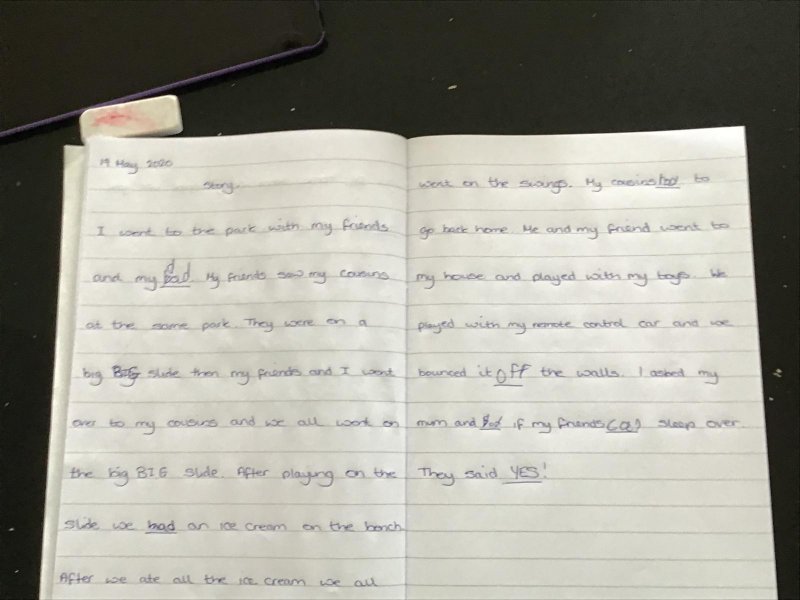 19 May 2020
Story.
I went to the park with my friends
and my dad. My friends saw my cousins
at the same park. They were on a
big BIG slide then my friends and I went
over to my cousins and we all went on
the big BIG slide. After playing on the
slide we had an ice cream on the bench
After we ate all the ice cream we all
went on the swings. My cousins had to
go back home. Me and my friend went to
my house and played with my toys. We
played with my remote control car and we
bounced it off the walls. I asked my
mum and if my friends can sleep over.
They said YES!